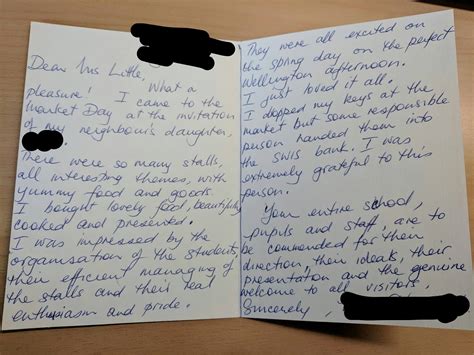 Dear Ms Little,
What a
pleasure! I came to the
Market Day at the invitation
of my neighbour's daughter,
There were so many stalls,
all interesting themes, with
yummy food and goods.
I bought lovely food, beautifully
cooked and presented.
I was impressed by the
organisation of the students,
their efficient managing of
the stalls and their real
enthusiasm and pride.
They were all excited on
the spring day on the perfect
Wellington afternoon.
I just loved it all.
I dopped my keys at the
market but some responsible
person handed them into
the SWIS bank. I was
extremely grateful to this
person.
Your entire school,
pupils and staff, are to
be commended for their
direction, their ideals, their
presentation and the genuine
welcome to all visitors,
Sincerely,